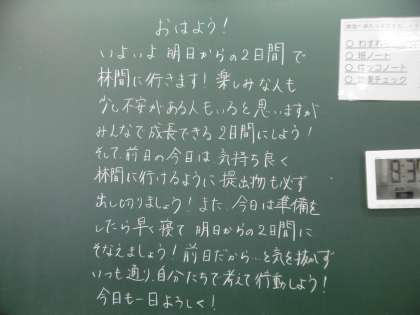 おはよう!
いよいよ明日からの2日間で
林間に行きます!楽しみな人も
少し不安がある人もいると思いますが
みんなで成長できる2日間にしよう!
そして、前日の今日は気持ち良く
林間に行けるように提出物も必ず
出し切りましょう!また、今日は準備を
したら早く寝て明日からの2日間に
そなえましょう!前日だから…と気を抜かず
いつも通り、自分たちで考えて行動しよう!
今日も一日よろしく!
チェック
8:3